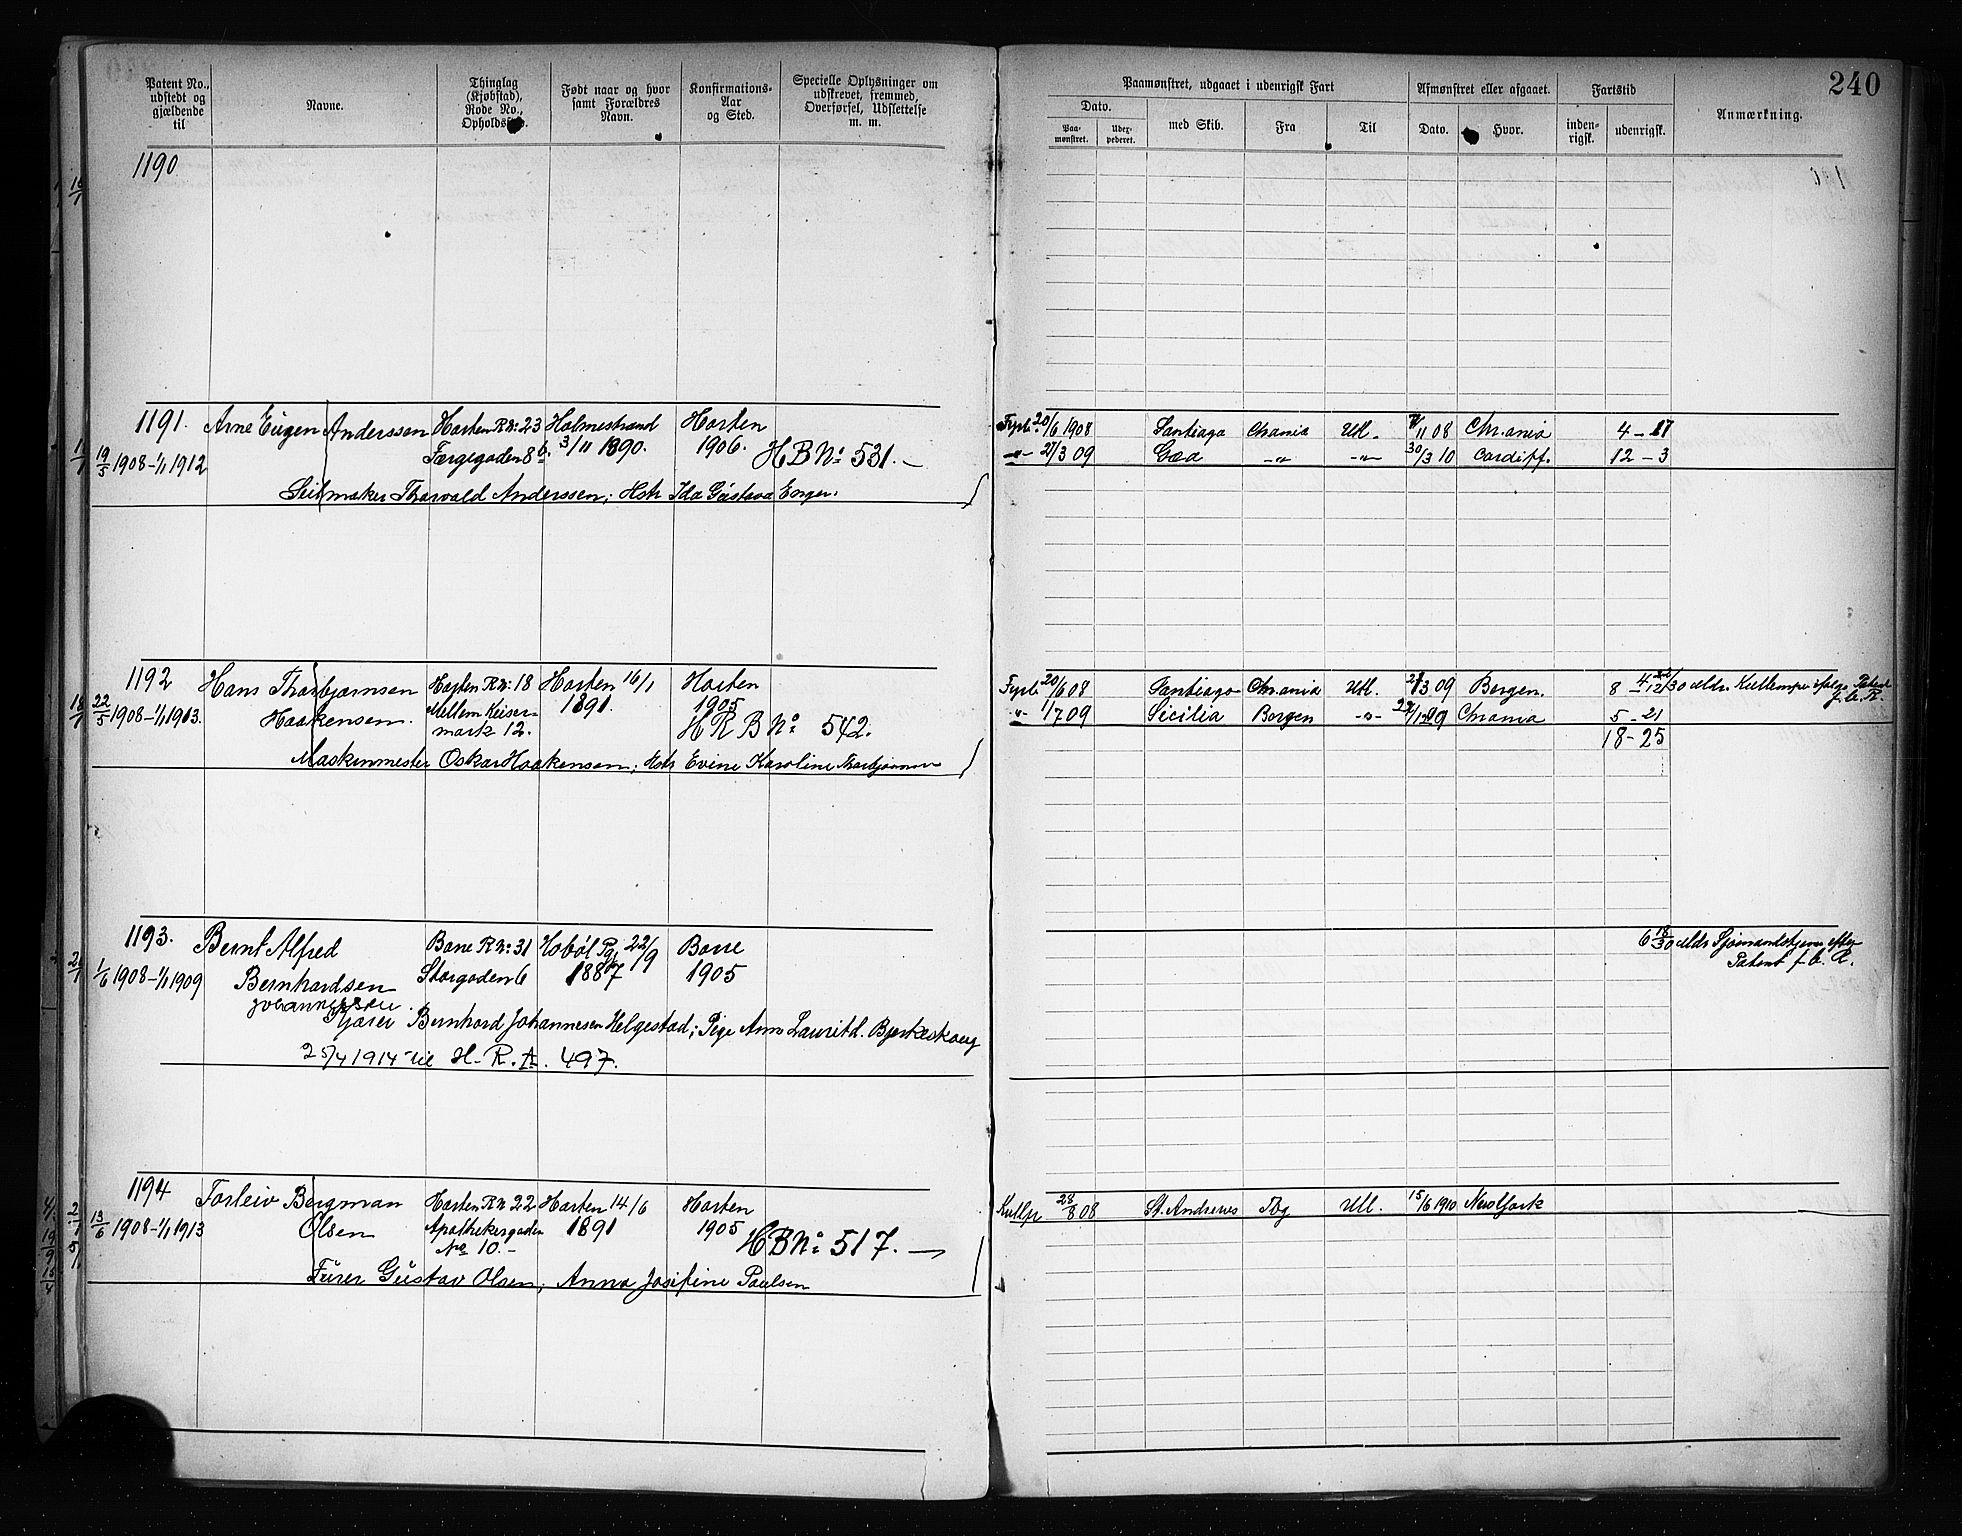 Patent No., udstedt og gjældende til
Navne.
Thinglag (Kjøbstad), Rode No., Opholdssted.
Født naar og hvor samt Forældres Navn.
Konfirmations-Aar og Sted.
Specielle Oplysninger om udskrevet, fremmed, Overførsel, Udslettelse m. m.
Paamønstret, udgaaet i udenrigsk Fart
Dato.
Paa-mønstret.
Uder-pederet.
med Skib.
Fra
Til
Afmønstret eller afgaaet.
Dato.
Hvor.
Fartstid
inden-rigsk.
udenrigsk.
Anmærkning.
240
1190
1191. Arne Eugen Anderssen Horten R.No: 23 Holmestrand Horten
19/5 1908-1/1 1912 Færgegaden 8 b. 3/11 1890. 1906. HB No: 531.-
Seilmaker Thorvald Anderssen; Hstr Ida Gustava Enger.
20/6 1908 Santiago Chrania Utl. 11 08 Chr.ania 4-17
-"- 27/3 09 Gæa -"- -"- 30/3 10 Cardiff. 12-3
1192 Hans Thorbjørnsen Horten R.No: 18 Horten 16/1 Horten
22/5 1908-1/1 1913. Haakensen. Mellem Keiser- 1891. 1905
mark 12. HRB No: 542.
Maskinmester Oskar Haakensen; Hstr Evine Karoline Thorbjørnsen
20/6 08 Santiago Chrania Utl. 3 09 Bergen. 8
-"- 1/7 09 Sicilia Bergen -"- Chrania 5-21
18-25
1193. Bernt Alfred Borre R.No: 31 Hobøl Pg. 22/9 Borre
1/6 1908-1/1 1909 Bernhardsen Storgaden 6 1887 1905
Johannessen
Bernhard Johannesen Helgestad; Pige Anne Lauritd. Bjerkeskoug
25/4 1914 til H.R.A. 497.
6 18/30 eldr Sjømandskjenn efter
Patent f. A. R.
1194 Torleiv Bergman Horten R.No 22 Horten 14/6 Horten
13/6 1908-1/1 1913 Olsen Apothekergaden 1891 1905
No 10.- HB No: 517.-
Furer Gustav Olsen; Anna Josefine Paulsen
28/8 08 St. Andrews Tbg Utl. 15/6 1910 Newport